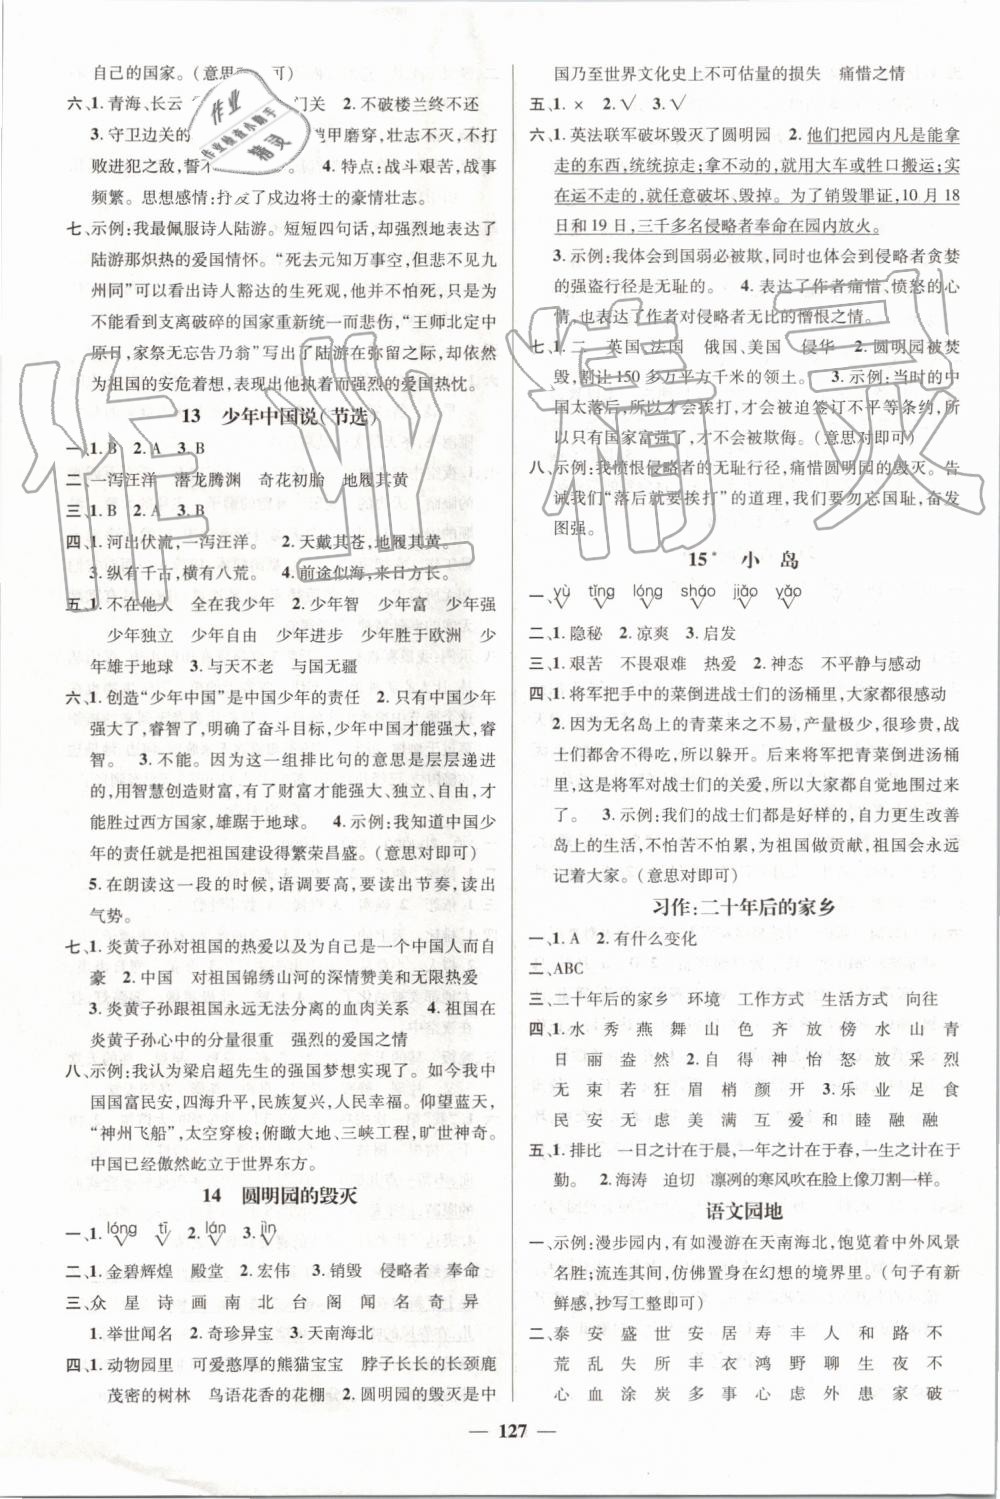 自己的国家。(意思 可)
六、1. 青海、长云 门关 2. 不破楼兰终不还
3. 守卫边关的 铠甲磨穿,壮志不灭,不打
败进犯之敌,誓不 4. 特点:战斗艰苦,战事
频繁。思想感情:抒发了戍边将士的豪情壮志。
七、示例:我最佩服诗人陆游。短短四句话,却强烈地表
现了陆游那炽热的爱国情怀。“死去元知万事空,但悲不见九
州同”可以看出诗人豁达的生死观,他并不怕死,只是为
不能看到支离破碎的国家重新统一而悲伤,“王师北定中
原日,家祭无忘告乃翁”写出了陆游在弥留之际,却依然
为祖国的安危着想,表现出他强烈的爱国热忱。
13 少年中国说(节选)
一、1. B 2. A 3. B
二、一泻汪洋 潜龙腾渊 奇花初胎 地履其黄
三、1. B 2. A 3. B
四、1. 河出伏流,一泻汪洋。 2. 天戴其苍,地履其黄。
3. 纵有千古,横有八荒。 4. 前途似海,来日方长。
五、1. 不在他人 全在我少年 2. 少年智 少年富 少年强
少年独立 少年自由 少年进步 少年胜于欧洲 少
年雄于地球 3. 与天不老 与国无疆
六、1. 创造“少年中国”是中国少年的责任 2. 只有中国少年
强大了,睿智了,明确了奋斗目标,少年中国才能强大,睿
智。 3. 不能。因为这一组排比句的意思是层层递进
的,用智慧创造财富,有了财富才能强大、独立、自由,才能
胜过西方国家,雄踞于地球。 4. 示例:我知道中国少
年的责任就是把祖国建设得繁荣昌盛。(意思对即可)
5. 在朗读这一段的时候,语调要高,要读出节奏,读出
气势。
七、1. 炎黄子孙对祖国的热爱以及为自己是一个中国人而自
豪 2. 中国 对祖国锦绣山河的深情赞美和无限热爱
3. 炎黄子孙跟祖国永远无法分离的血肉关系 4. 祖国在
炎黄子孙心中的分量很重 强烈的爱国之情
八、示例:我认为梁启超先生的强国梦想实现了。我们中
国国富民安,四海升平,民族复兴,人民幸福。仰望蓝天,
“神州飞船”,太空穿梭;俯瞰大地、三峡工程,旷世神奇。
中国已经傲然屹立于世界东方。
14 圆明园的毁灭
一、1. lóng tǐ 2. lán 3. jìn
二、1. 金碧辉煌 殿堂 2. 宏伟 3. 销毁 侵略者 奉命
三、众 星 诗 画 南 北 台 阁 闻 名 奇 异
1. 举世闻名 2. 奇珍异宝 3. 天南海北
四、1. 动物园里 可爱憨厚的熊猫宝宝 脖子长长的长颈鹿
茂密的树林 鸟语花香的花棚 2. 圆明园的毁灭是中
国乃至世界文化史上不可估量的损失 痛惜之情
五、1. × 2. √ 3. √
六、1. 英法联军破坏毁灭了圆明园 2. 他们把园内凡是能拿
走的东西,统统掠走;拿不动的,就用大车或牲口搬运;实
在运不走的,就任意破坏、毁掉。为了销毁罪证,10 月 18
日和 19 日,三千多名侵略者奉命在园内放火。
3. 示例:我体会到国弱必被欺,同时也体会到侵略者贪婪
的强盗行径是无耻的。 4. 表达了作者痛惜、愤怒的心
情,也表达了作者对侵略者无比的憎恨之情。
七、1. 二 英国、法国 俄国、美国 侵华 2. 圆明园被焚
毁,割让 150 多万平方千米的领土。 3. 示例:当时的中
国太落后,所以才会挨打,才会被迫签订不平等条约,所
以只有国家富强了,才不会被欺侮。(意思对即可)
八、示例:我愤恨侵略者的无耻行径,痛惜圆明园的毁灭。告
诫我们“落后就要挨打”的道理,我们要勿忘国耻,奋发
图强。
15* 小 岛
一、yù tǐng lóng sháo jiǎo yǎo
二、1. 隐秘 2. 凉爽 3. 启发
三、1. 艰苦 不畏艰难 热爱 2. 神态 不平静与感动
四、1. 将军把手中的菜倒进战士们的汤桶里,大家都很感动
2. 因为无名岛上的青菜来之不易,产量极少,很珍贵,战
士们都舍不得吃,所以躲开。后来将军把青菜倒进汤桶
里,这是将军对战士们的关爱,所以大家都自觉地围过来
了。 3. 示例:我们的战士们都是好样的,自力更生改善
岛上的生活,不怕苦不怕累,为祖国做贡献,祖国会永远
记着大家。(意思对即可)
习作:二十年后的家乡
一、1. A 2. 有什么变化
二、ABC
三、二十年后的家乡 环境 工作方式 生活方式 向往
四、1. 水 秀 燕 舞 山 色 齐 放 傍 水 山 青
日 丽 盎 然 2. 自 得 神 怡 怒 放 采 烈
无 束 若 狂 眉 梢 颜 开 3. 乐 业 足 食
民 安 无 虑 美 满 互 爱 和 睦 融 融
五、1. 排比 一日之计在于晨,一年之计在于春,一生之计在于
勤。 2. 海涛 迫切 凛冽的寒风吹在脸上像刀割一样。
语文园地
一、示例:漫步园内,有如漫游在天南海北,饱览着中外风景
名胜;流连其间,仿佛置身在幻想的境界里。(句子有新
鲜感,抄写工整即可)
二、泰 安 盛 世 安 居 寿 丰 人 和 路 不
荒 乱 失 所 丰 衣 鸿 野 聊 生 夜 不
心 血 涂 炭 多 事 心 虑 外 患 家 破
— 127 —
作业精灵
作业
作业检查小助手
精灵